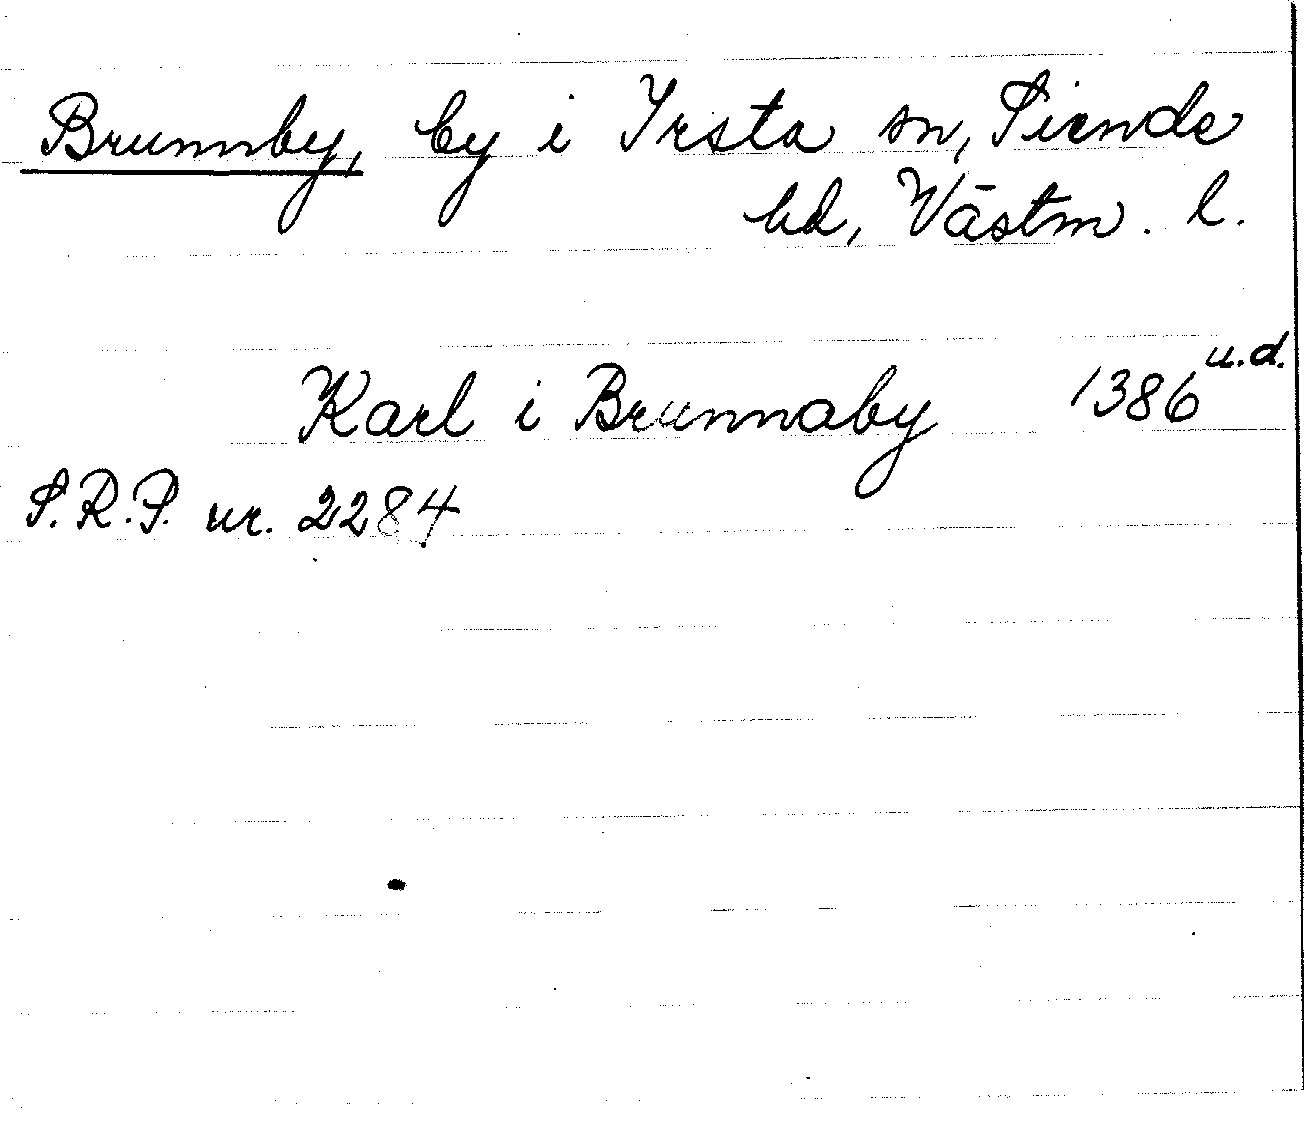 Brunnby, by i Irsta sn, Siende
hd, Västm. l.
Karl i Brunnaby 1386 u.d.
S.R.P. nr. 2284